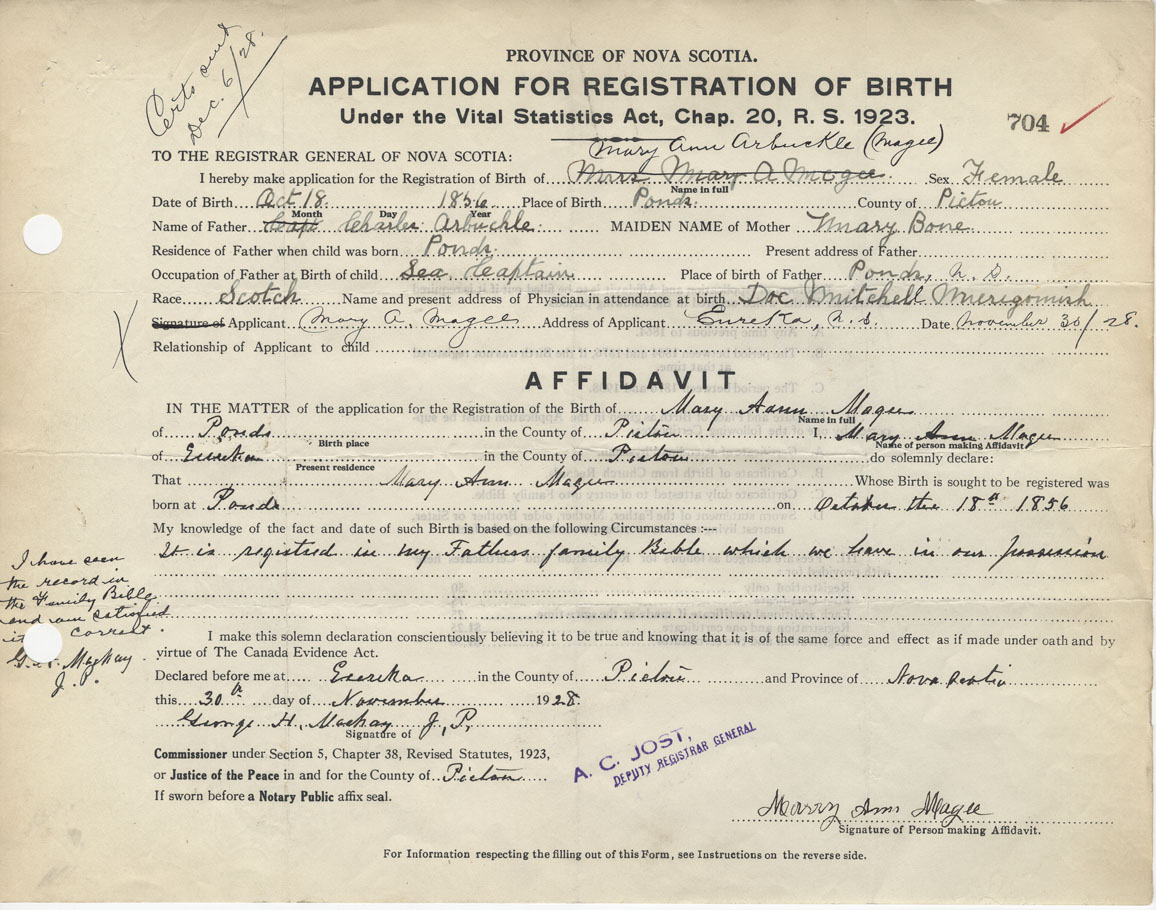 Certs sent
Dec. 6/28.
PROVINCE OF NOVA SCOTIA.
APPLICATION FOR REGISTRATION OF BIRTH
Under the Vital Statistics Act, Chap. 20, R. S. 1923.
704
Mary Ann Arbuckle (Magee)
TO THE REGISTRAR GENERAL OF NOVA SCOTIA:
I hereby make application for the Registration of Birth of Mrs Mary A Magee. Sex Female
Name in full
Date of Birth Oct 18. 1856 Place of Birth Ponds. County of Pictou
Month Day Year
Name of Father Capt Charles Arbuckle. MAIDEN NAME of Mother Mary Bone.
Residence of Father when child was born Ponds. Present address of Father
Occupation of Father at Birth of child Sea Captain Place of birth of Father Ponds, N. S.
Race Scotch Name and present address of Physician in attendance at birth Doc Mitchell Merigomish
Signature of Applicant Mary A. Magee Address of Applicant Eureka, N. S. Date November 30/28.
Relationship of Applicant to child
AFFIDAVIT
IN THE MATTER of the application for the Registration of the Birth of Mary Aann Magee
Name in full
of Ponds in the County of Pictou I, Mary Ann Magee
Birth place Name of person making Affidavit
of Eureka in the County of Pictou do solemnly declare:
Present residence
That Mary Ann Magee Whose Birth is sought to be registered was
born at Ponds on October the 18th 1856
My knowledge of the fact and date of such Birth is based on the following Circumstances :—
It is registred in my Fathers family Bible which we have in our possession
I have seen
the record in
the Family Bible
and am satisfied
it correct.
G. H. MacKay
J. P.
I make this solemn declaration conscientiously believing it to be true and knowing that it is of the same force and effect as if made under oath and by
virtue of The Canada Evidence Act.
Declared before me at Eureka in the County of Pictou and Province of Nova Scotia
this 30th day of November 1928.
George H. Mackay J. P.
Signature of
Commissioner under Section 5, Chapter 38, Revised Statutes, 1923,
or Justice of the Peace in and for the County of Pictou
If sworn before a Notary Public affix seal.
A. C. JOST,
DEPUTY REGISTRAR GENERAL
Marry Ann Magee
Signature of Person making Affidavit.
For Information respecting the filling out of this Form, see Instructions on the reverse side.